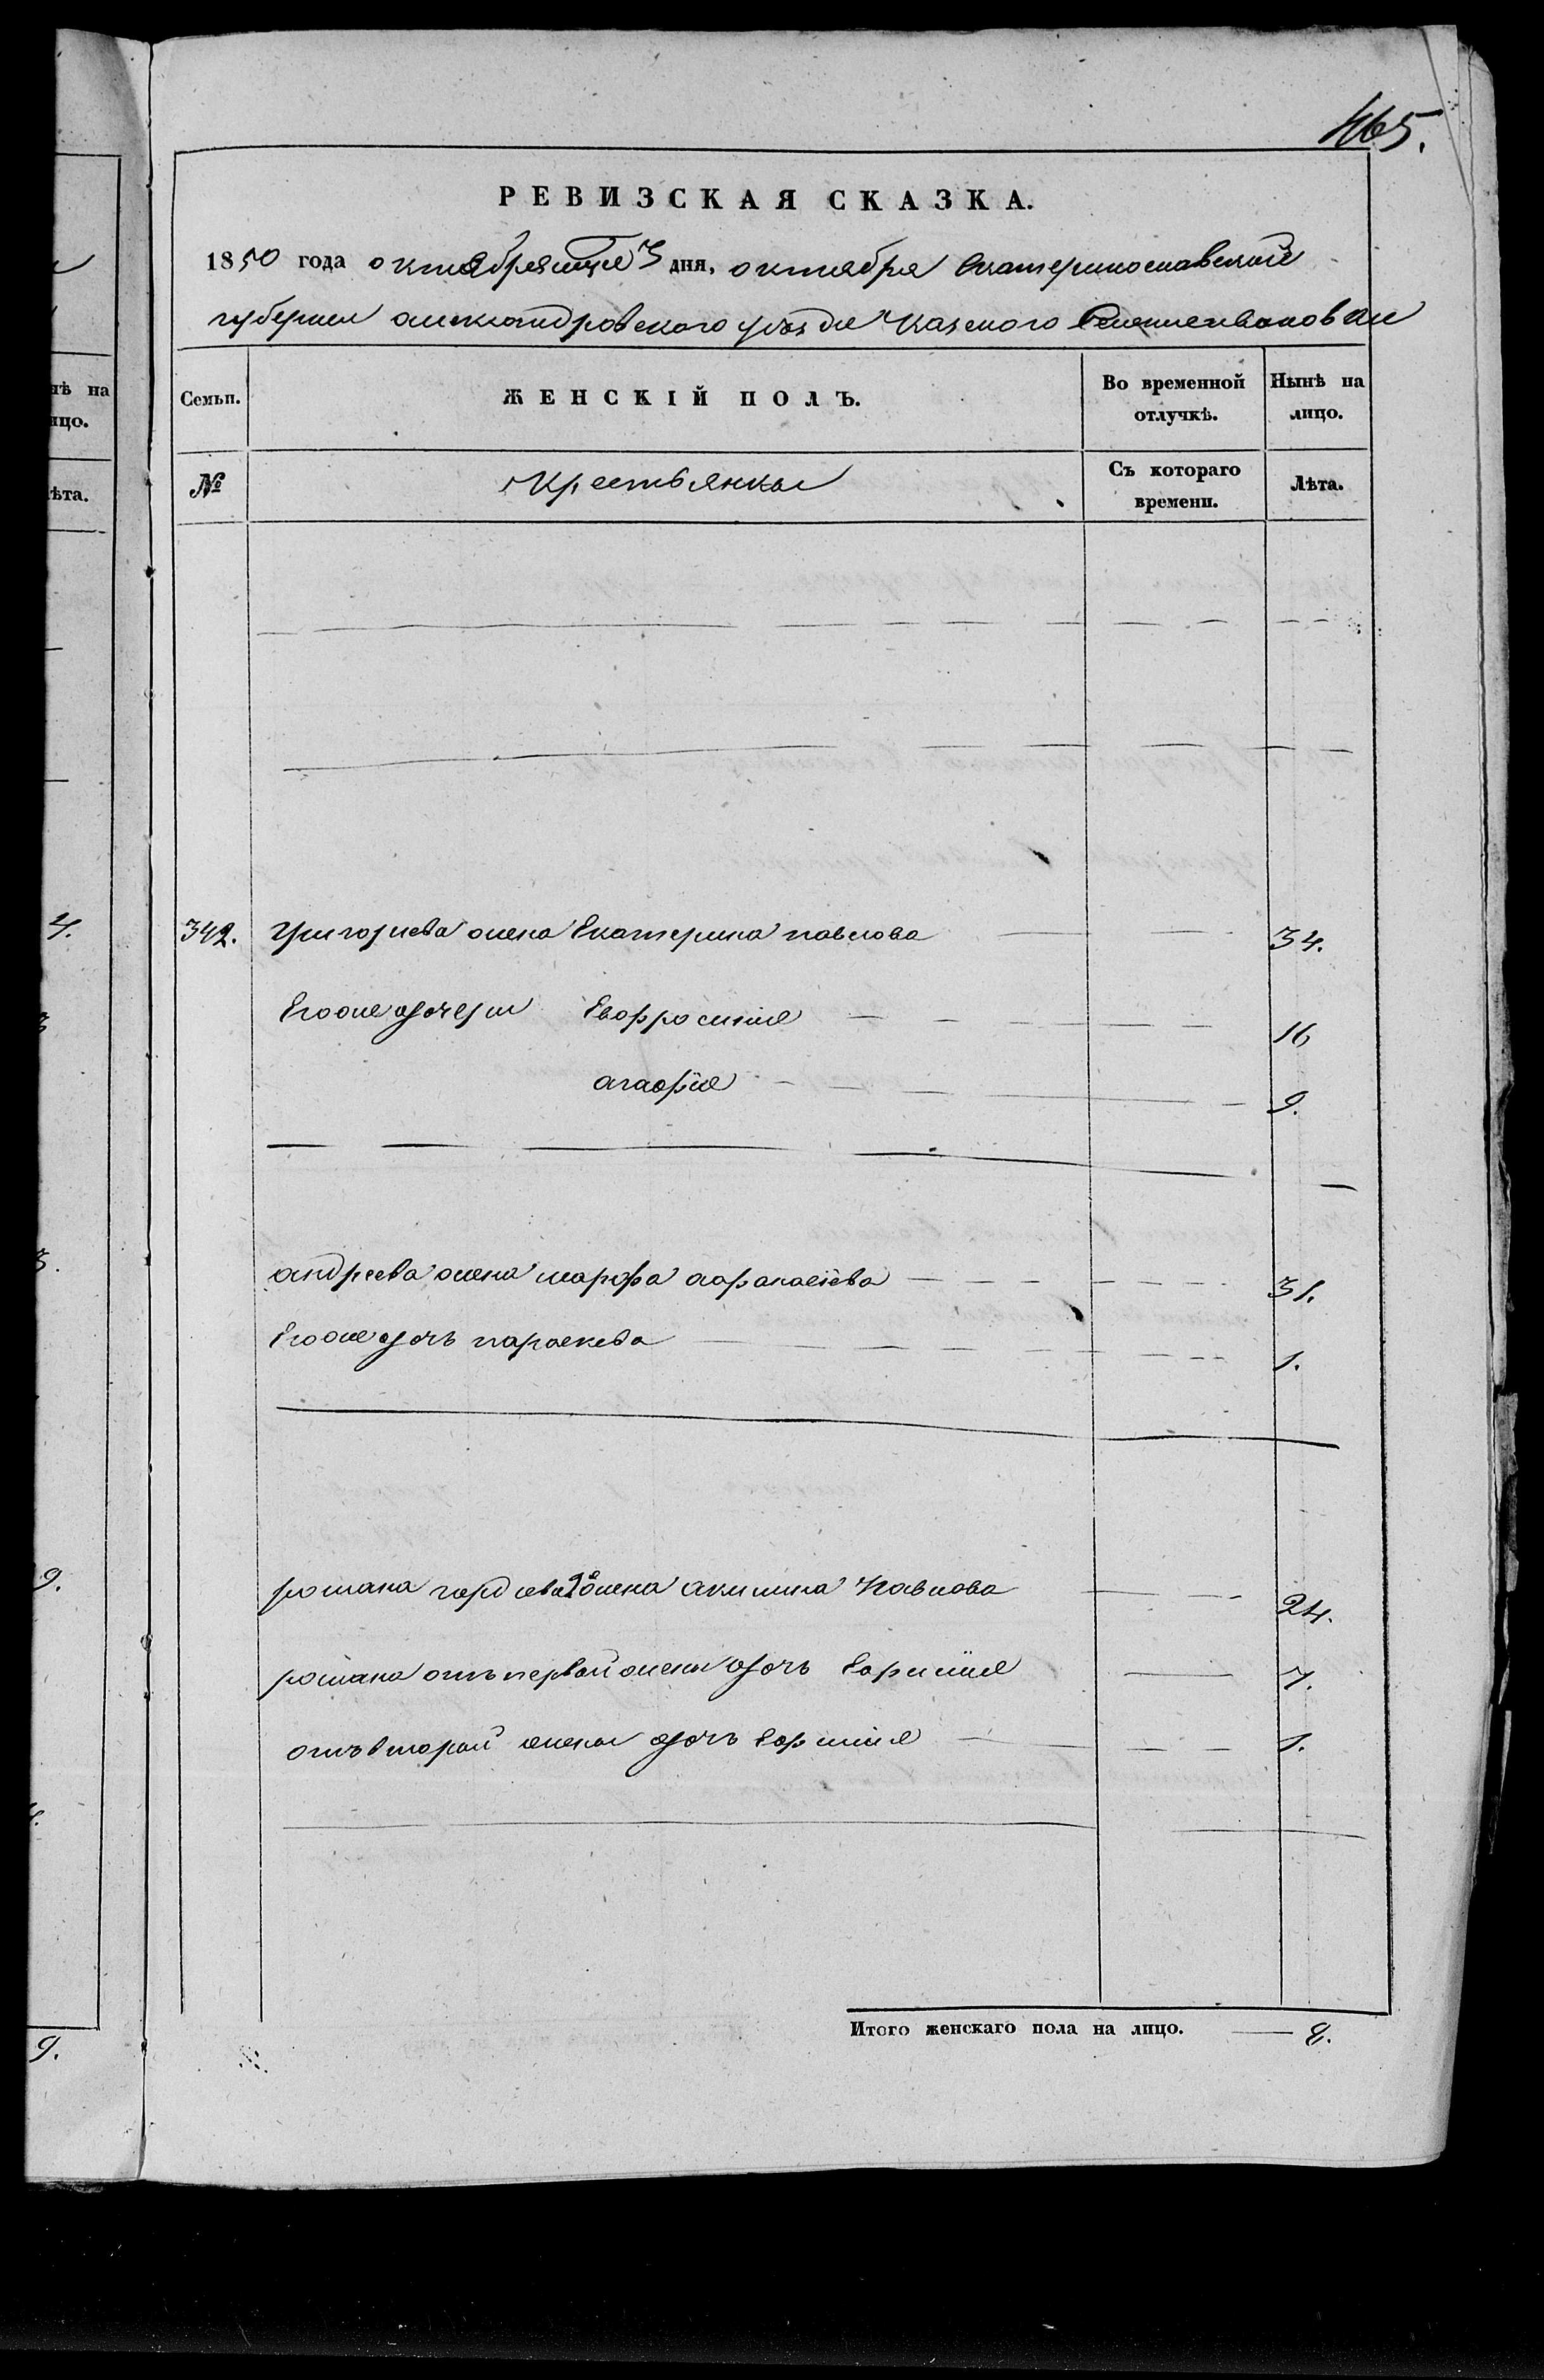 465.
РЕВИЗСКАЯ СКАЗКА.
1850 года октября дня, октября Екатеринославской
губернии александровского уѣзда Казеного
Семьи.
ЖЕНСКІЙ ПОЛЪ.
Во временной отлучкѣ.
Нынѣ на лицо.
№
Крестьянки
Съ котораго времени.
Лѣта.
342. григорьева жена Екатерина павлова 34.
Егоже дочери Евфросинія 16
агафія 9.
андреева жена марфа афанасіева 31.
Егоже дочь параскева 1.
романа гордѣева 2я жена акилина Павлова 24.
романа отъ первой жены дочь Евфимія 7.
отъ второй жены дочь Евфимія 1.
Итого женскаго пола на лицо. 8.
нѣ на
ицо.
ѣта.
4.
3
3.
9.
4.
9.